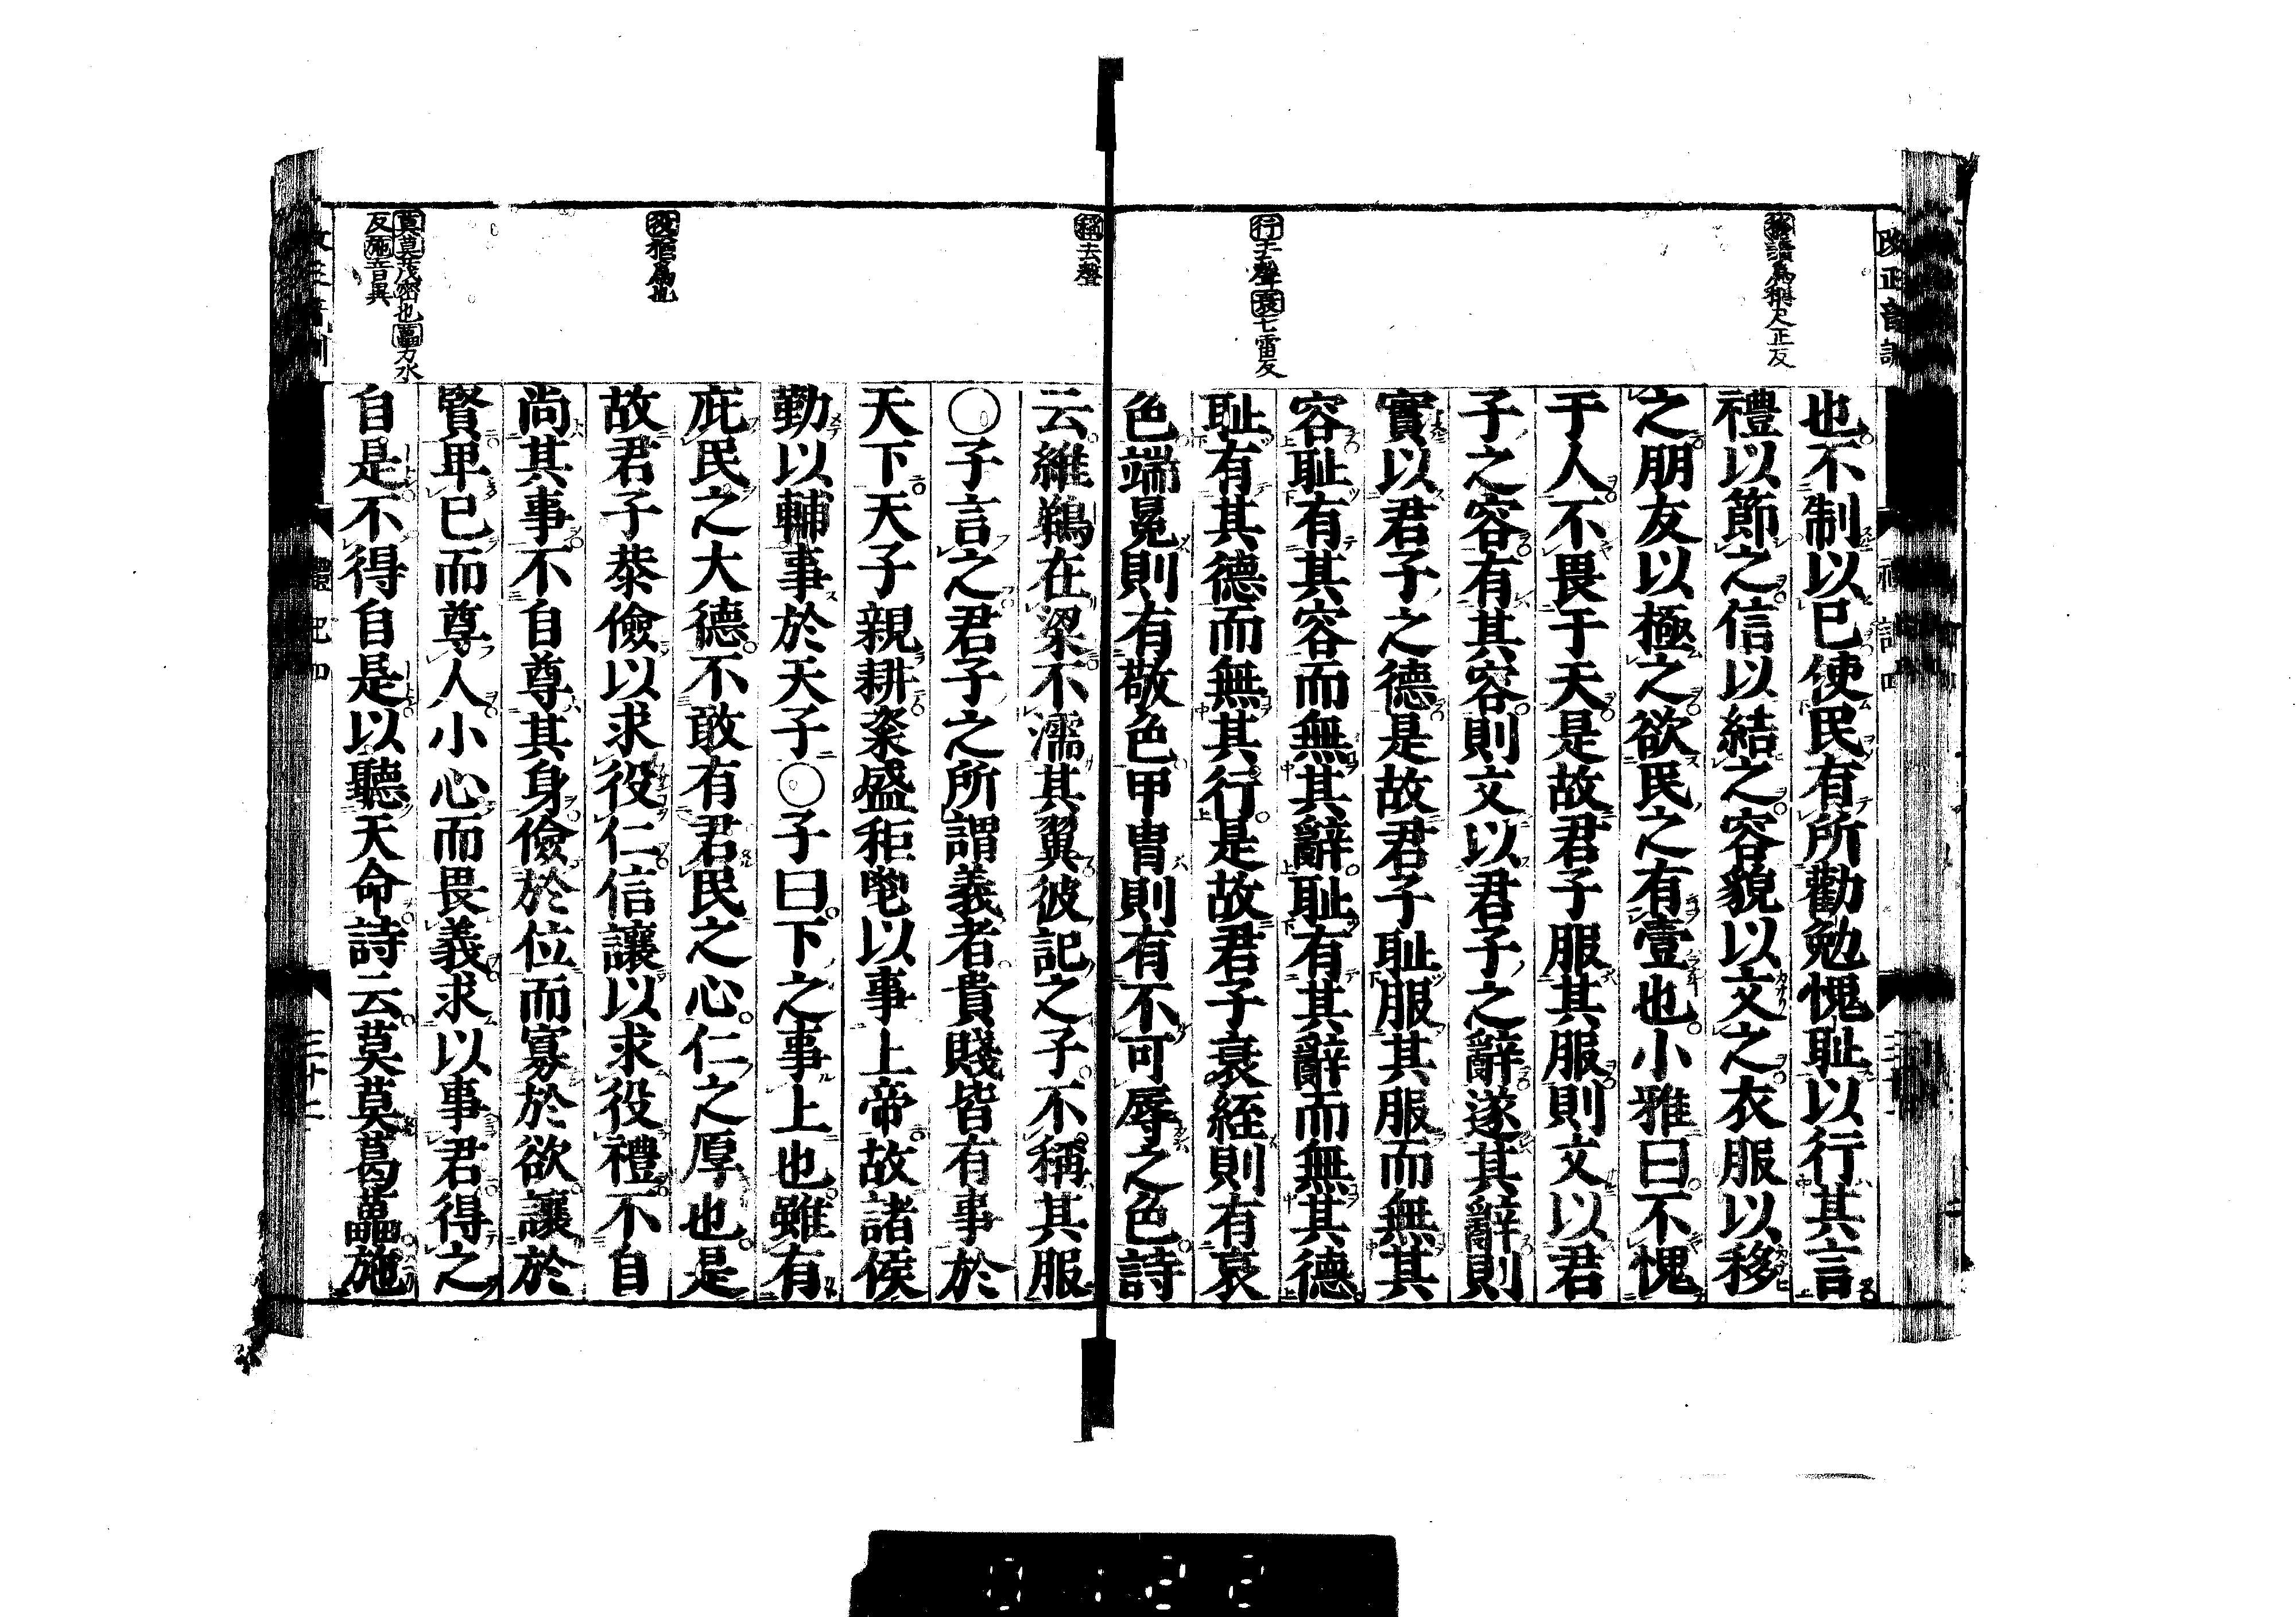 移讀爲稱尺正反
行去聲衰七雷反
也不制以已使民有所勸勉愧耻以行其言
禮以節之信以結之容貌以文之衣服以移
之朋友以極之欲民之有壹也小雅曰不愧
于人不畏于天是故君子服其服則文以君
子之容有其容則文以君子之辭遂其辭則
實以君子之德是故君子耻服其服而無其
容耻有其容而無其辭耻有其辭而無其德
耻有其德而無其行是故君子衰絰則有哀
色端冕則有敬色甲冑則有不可辱之色詩
稱去聲
役猶爲也
莫莫茂密也藟力水
反施音異
云維鵜在梁不濡其翼彼記之子不稱其服
○子言之君子之所謂義者貴賤皆有事於
天下天子親耕粢盛秬鬯以事上帝故諸侯
勤以輔事於天子○子曰下之事上也雖有
庇民之大德不敢有君民之心仁之厚也是
故君子恭儉以求役仁信讓以求役禮不自
尚其事不自尊其身儉於位而寡於欲讓於
賢卑已而尊人小心而畏義求以事君得之
自是不得自是以聽天命詩云莫莫葛藟施